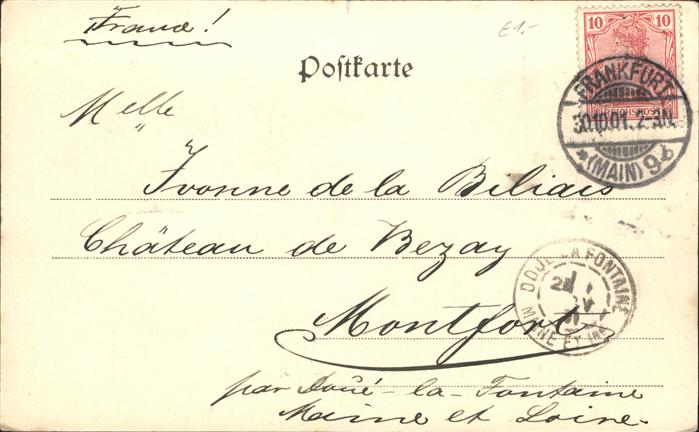 France!
£1.-
10 10
Postkarte
FRANKFURT
30.10.01. 2-3N.
*(MAIN) 9 b
Melle
Yvonne de la Biliais
Château de Bezay
DOUÉ-LA-FONTAINE
MAINE ET LRE
Montfort
par Doué-la-Fontaine
Maine et Loire.